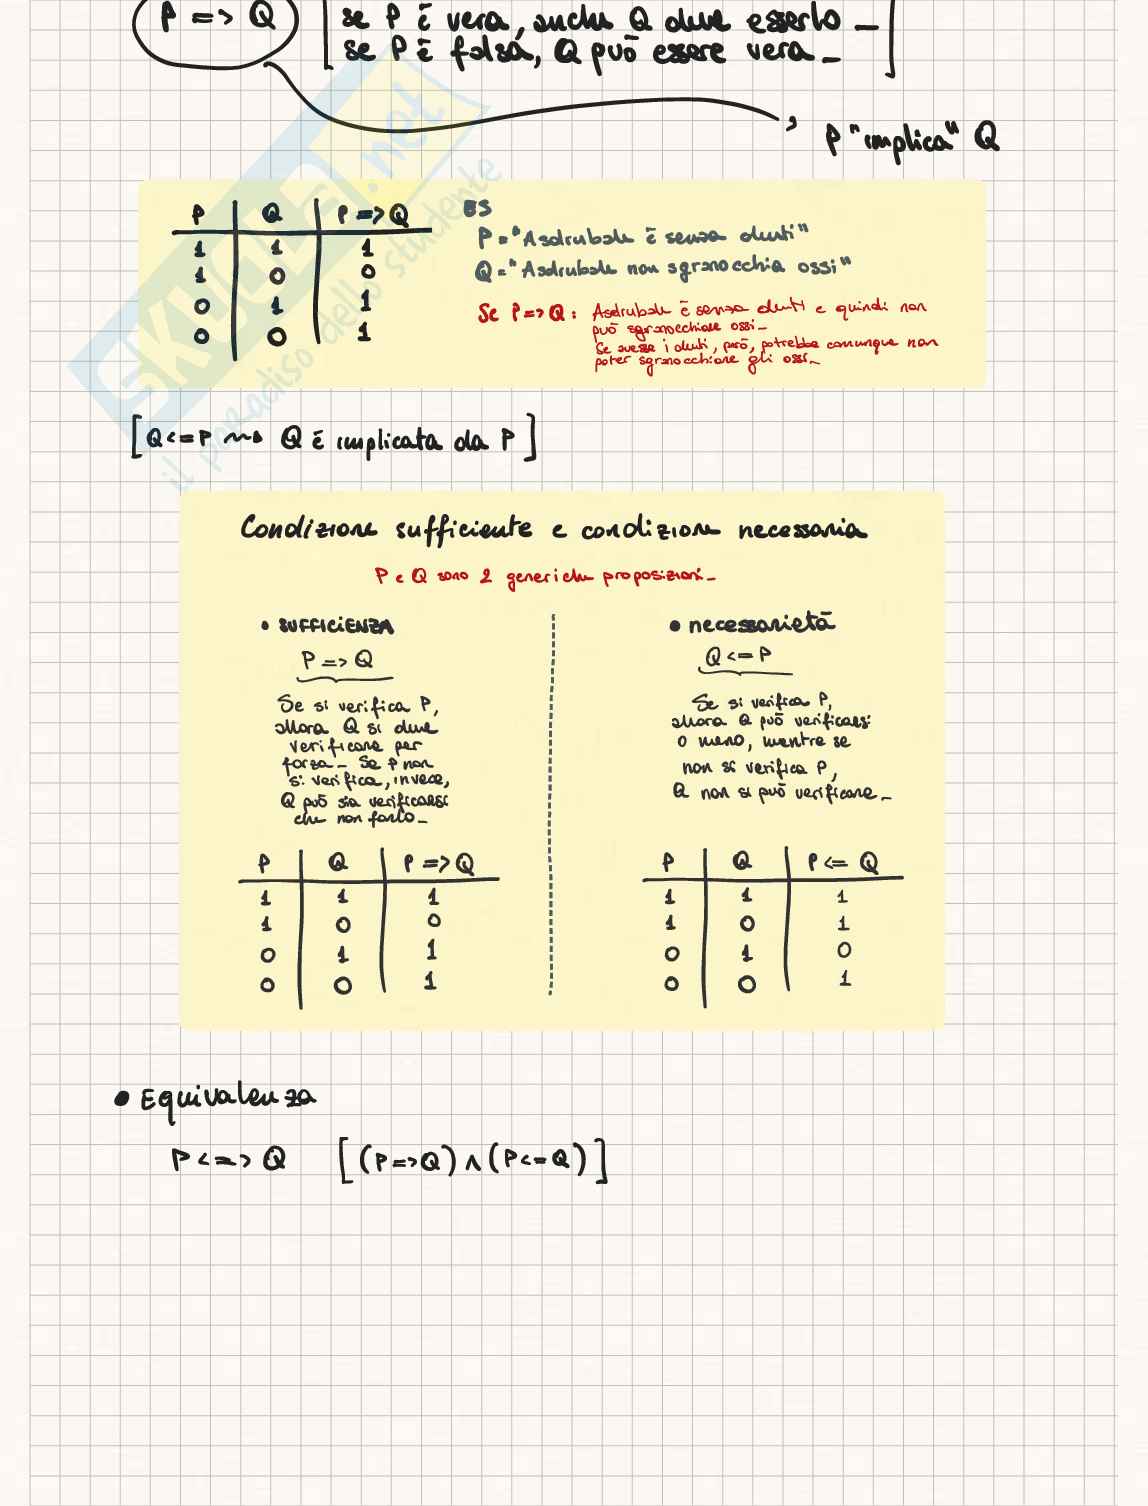 P => Q [se P è vera, anche Q deve esserlo_
se P è falsa, Q può essere vera_]
P "implica" Q
P Q P => Q
1 1 1
1 0 0
0 1 1
0 0 1
ES
P = "Asdrubale è senza denti"
Q = "Asdrubale non sgranocchia ossi"
Se P => Q: Asdrubale è senza denti e quindi non
può sgranocchiare ossi_
Se avesse i denti, però, potrebbe comunque non
poter sgranocchiare gli ossi_
[Q <= P ~> Q è implicata da P]
Condizione sufficiente e condizione necessaria
P e Q sono 2 generiche proposizioni_
• SUFFICIENZA
P => Q
Se si verifica P,
allora Q si deve
verificare per
forza_ Se P non
si verifica, invece,
Q può sia verificarsi
che non farlo_
P Q P => Q
1 1 1
1 0 0
0 1 1
0 0 1
• necessarietà
Q <= P
Se si verifica P,
allora Q può verificarsi
o meno, mentre se
non si verifica P,
Q non si può verificare_
P Q P <= Q
1 1 1
1 0 1
0 1 0
0 0 1
• Equivalenza
P <=> Q [(P => Q) ∧ (P <= Q)]
SKUOLA.net
il paradiso dello studente